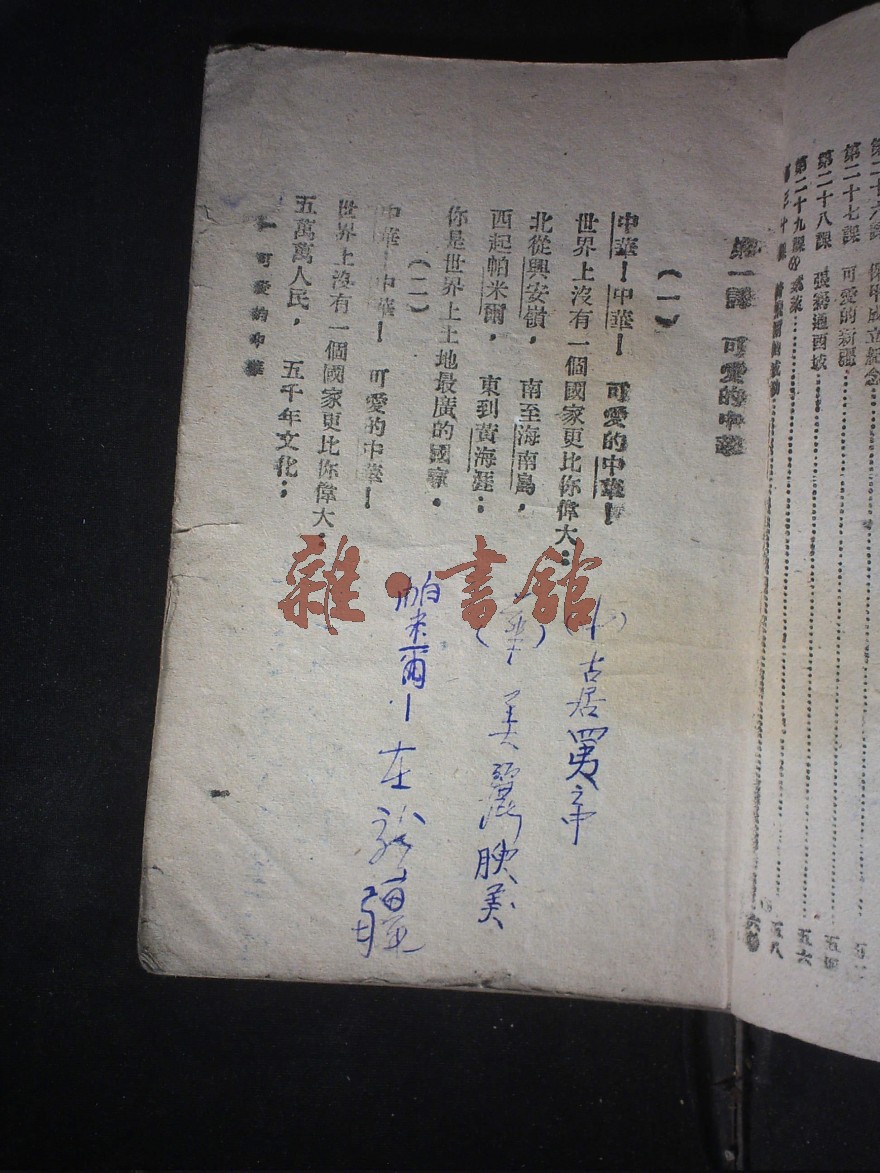 第二十七課　可愛的新疆
第二十八課　張騫通西域
五四
第二十九課
五六
五八
第一課　可愛的中華
(一)
中華！中華！可愛的中華！
世界上沒有一個國家更比你偉大：
北從興安嶺，南至海南島，
西起帕米爾，東到黃海涯：
你是世界上土地最廣的國家。
(二)
中華！中華！可愛的中華！
世界上沒有一個國家更比你偉大：
五萬萬人民，五千年文化；
可愛的中華
古居
(華)美麗
帕米爾—在新疆
雜·書館